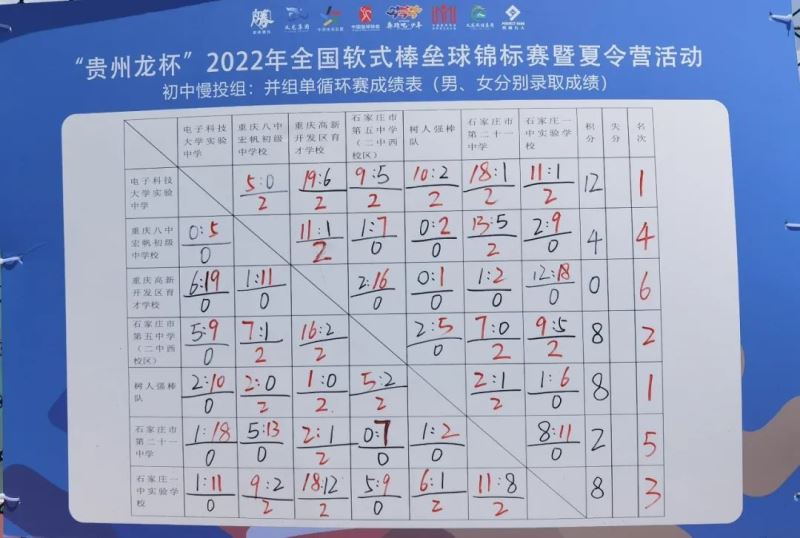 “贵州龙杯”2022年全国软式棒垒球锦标赛暨夏令营活动
初中慢投组：并组单循环赛成绩表（男、女分别录取成绩）
电子科技大学实验中学 重庆八中宏帆初级中学校 重庆高新开发区育才学校 石家庄市第五中学（二中西校区） 树人强棒队 石家庄市第二十一中学 石家庄一中实验学校 积分 失分 名次
电子科技大学实验中学 5:0 2 19:6 2 9:5 2 10:2 2 18:1 2 11:1 2 12 1
重庆八中宏帆初级中学校 0:5 0 11:1 2 1:7 0 0:2 0 13:5 2 2:9 0 4 4
重庆高新开发区育才学校 6:19 0 1:11 0 2:16 0 0:1 0 1:2 0 12:18 0 0 6
石家庄市第五中学（二中西校区） 5:9 0 7:1 2 16:2 2 2:5 0 7:0 2 9:5 2 8 2
树人强棒队 2:10 0 2:0 2 1:0 2 5:2 2 2:1 2 1:6 0 8 1
石家庄市第二十一中学 1:18 0 5:13 0 2:1 2 0:7 0 1:2 0 8:11 0 2 5
石家庄一中实验学校 1:11 0 9:2 2 18:12 2 5:9 0 6:1 2 11:8 2 8 3